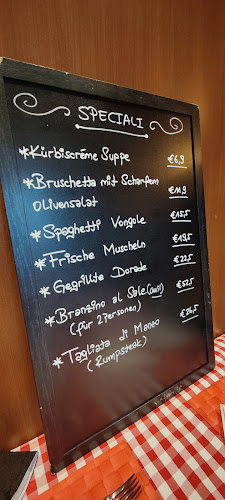 SPECIALI
*Kürbiscrème Suppe €6,9
*Bruschetta mit Scharfem
Olivensalat €11,9
*Spaghetti Vongole €15,5
*Frische Muscheln €19,5
*Gegrillte Dorade €22,5
*Branzino al Sale €52,5
(für 2 Personen)
*Tagliata di Manzo €26,5
(Rumpsteak)